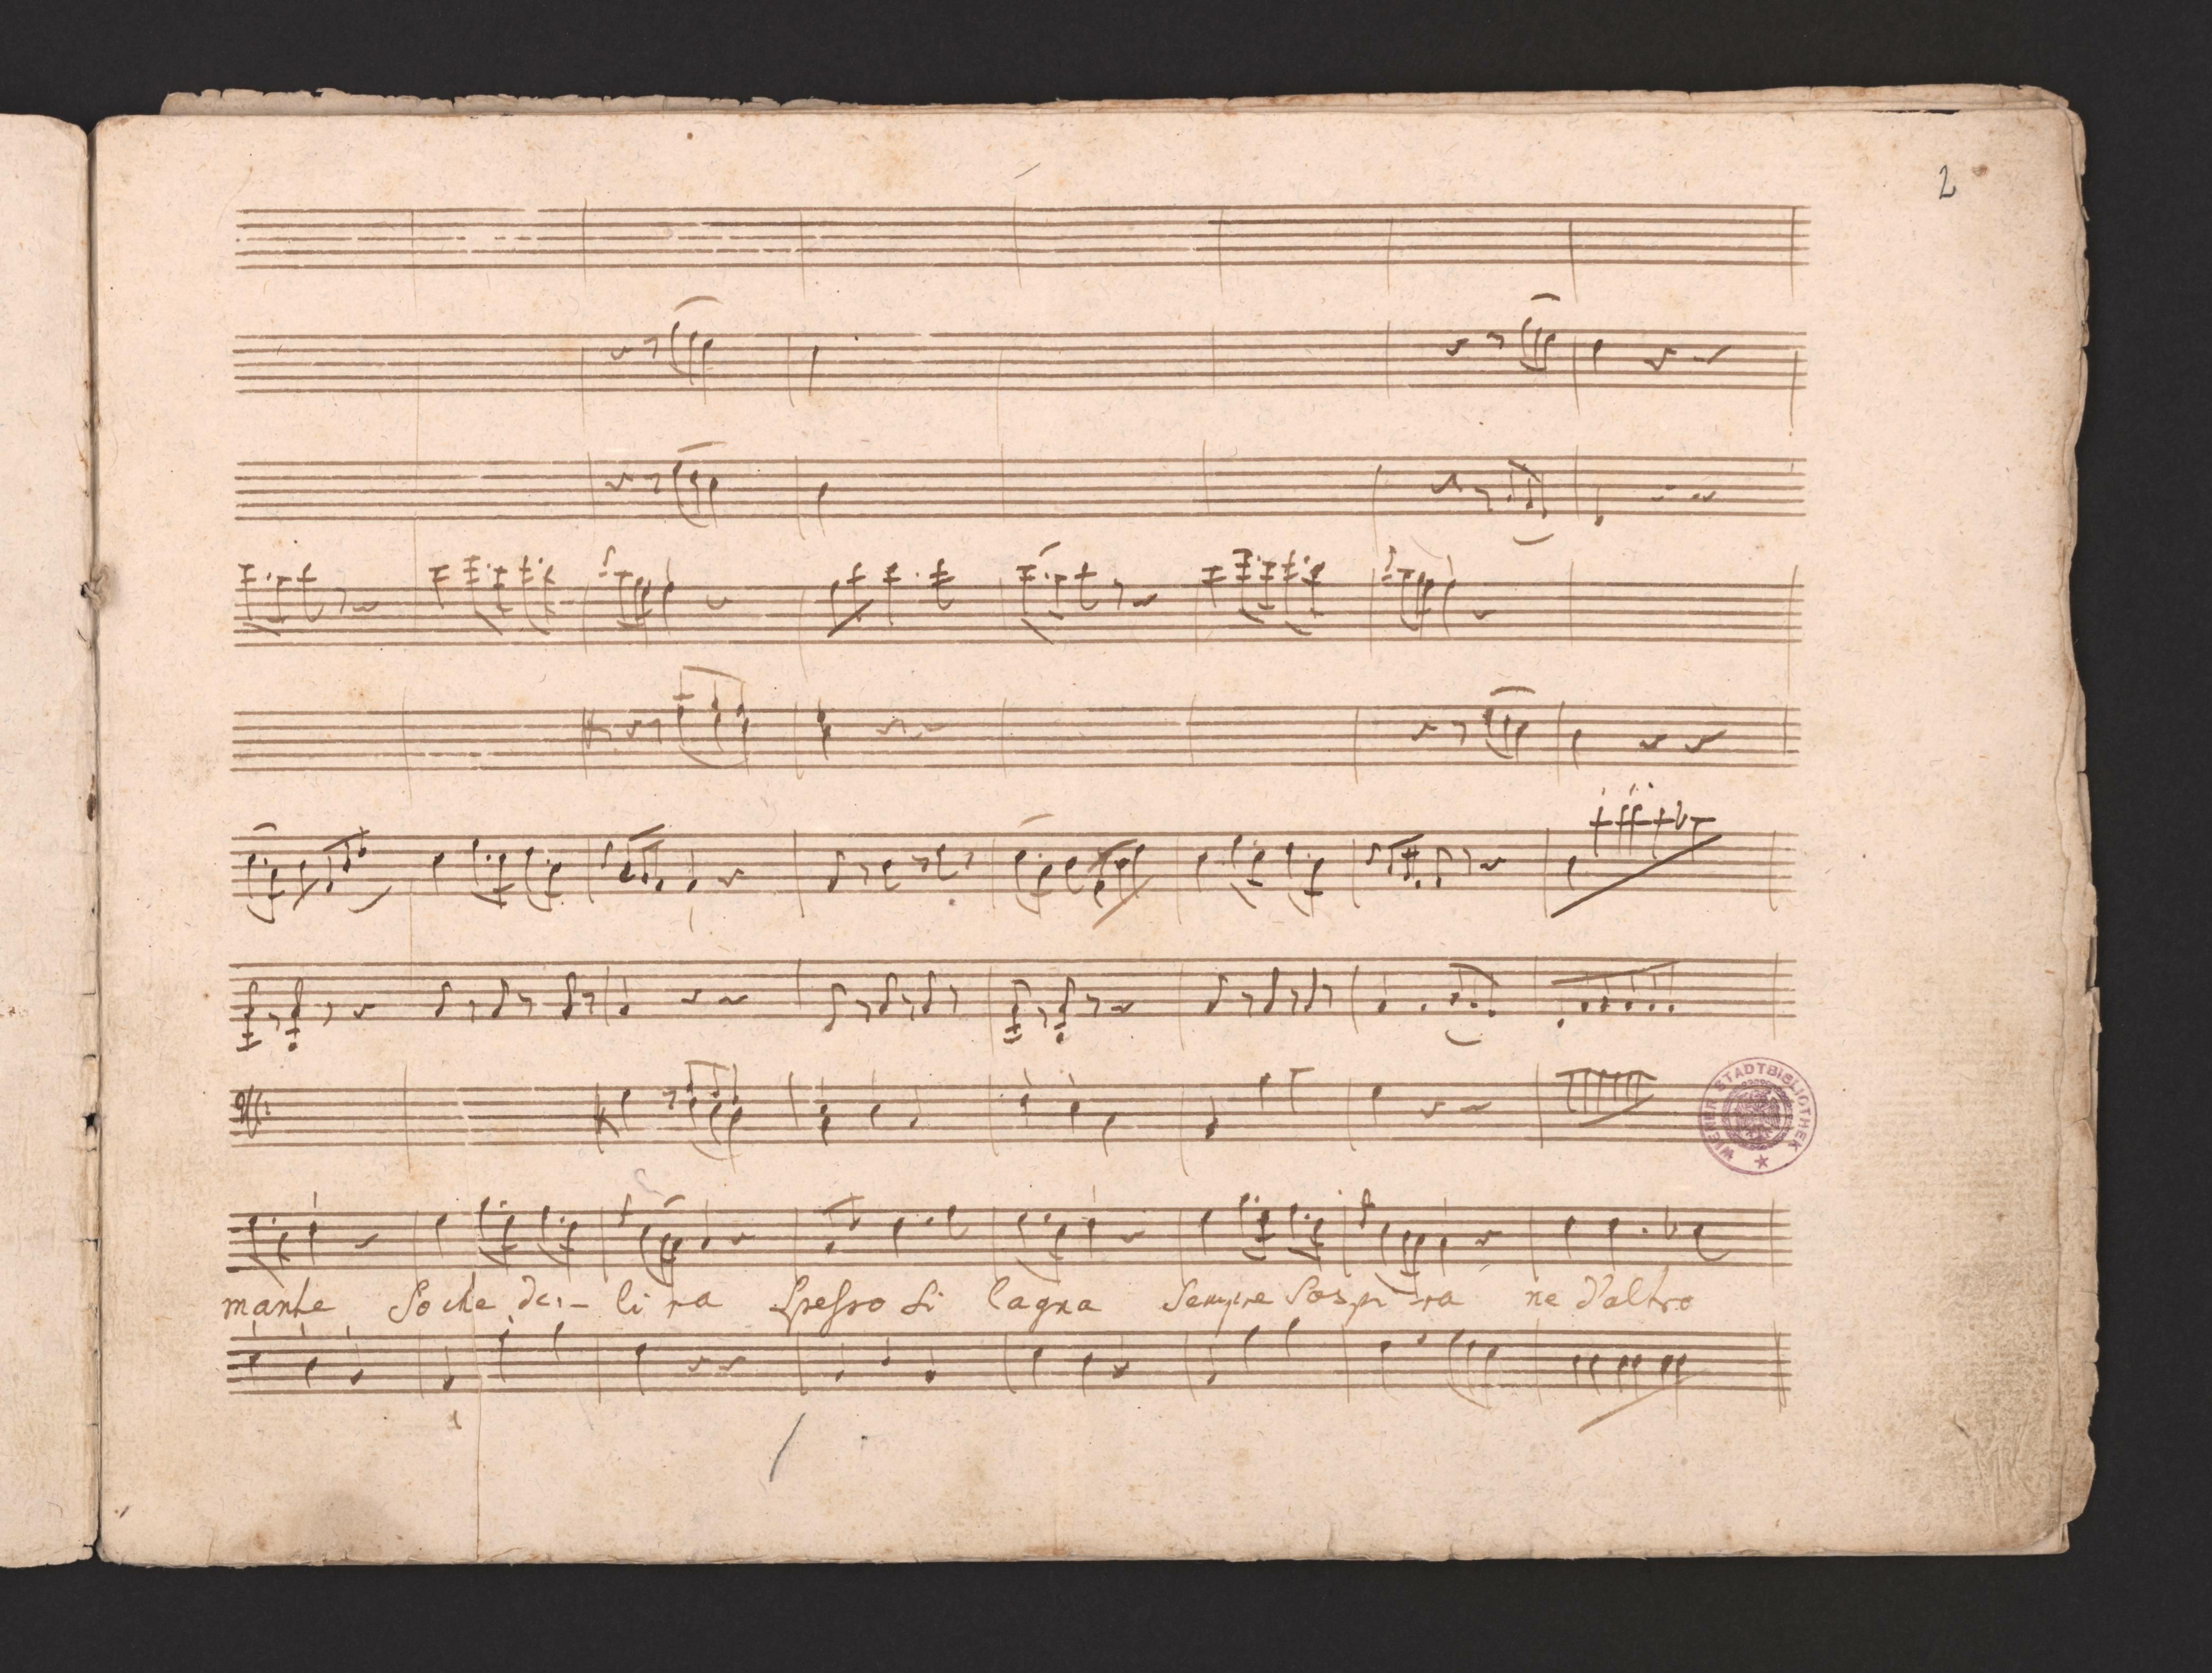 2
WIENER STADTBIBLIOTHEK
mante So che de - li ra Spesso Si lagna Sempre Sospi - ra ne d'altro